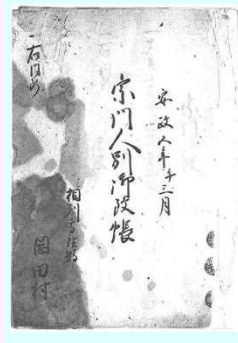 安政五年午三月
宗門人別御改帳
相州高座郡
岡田村